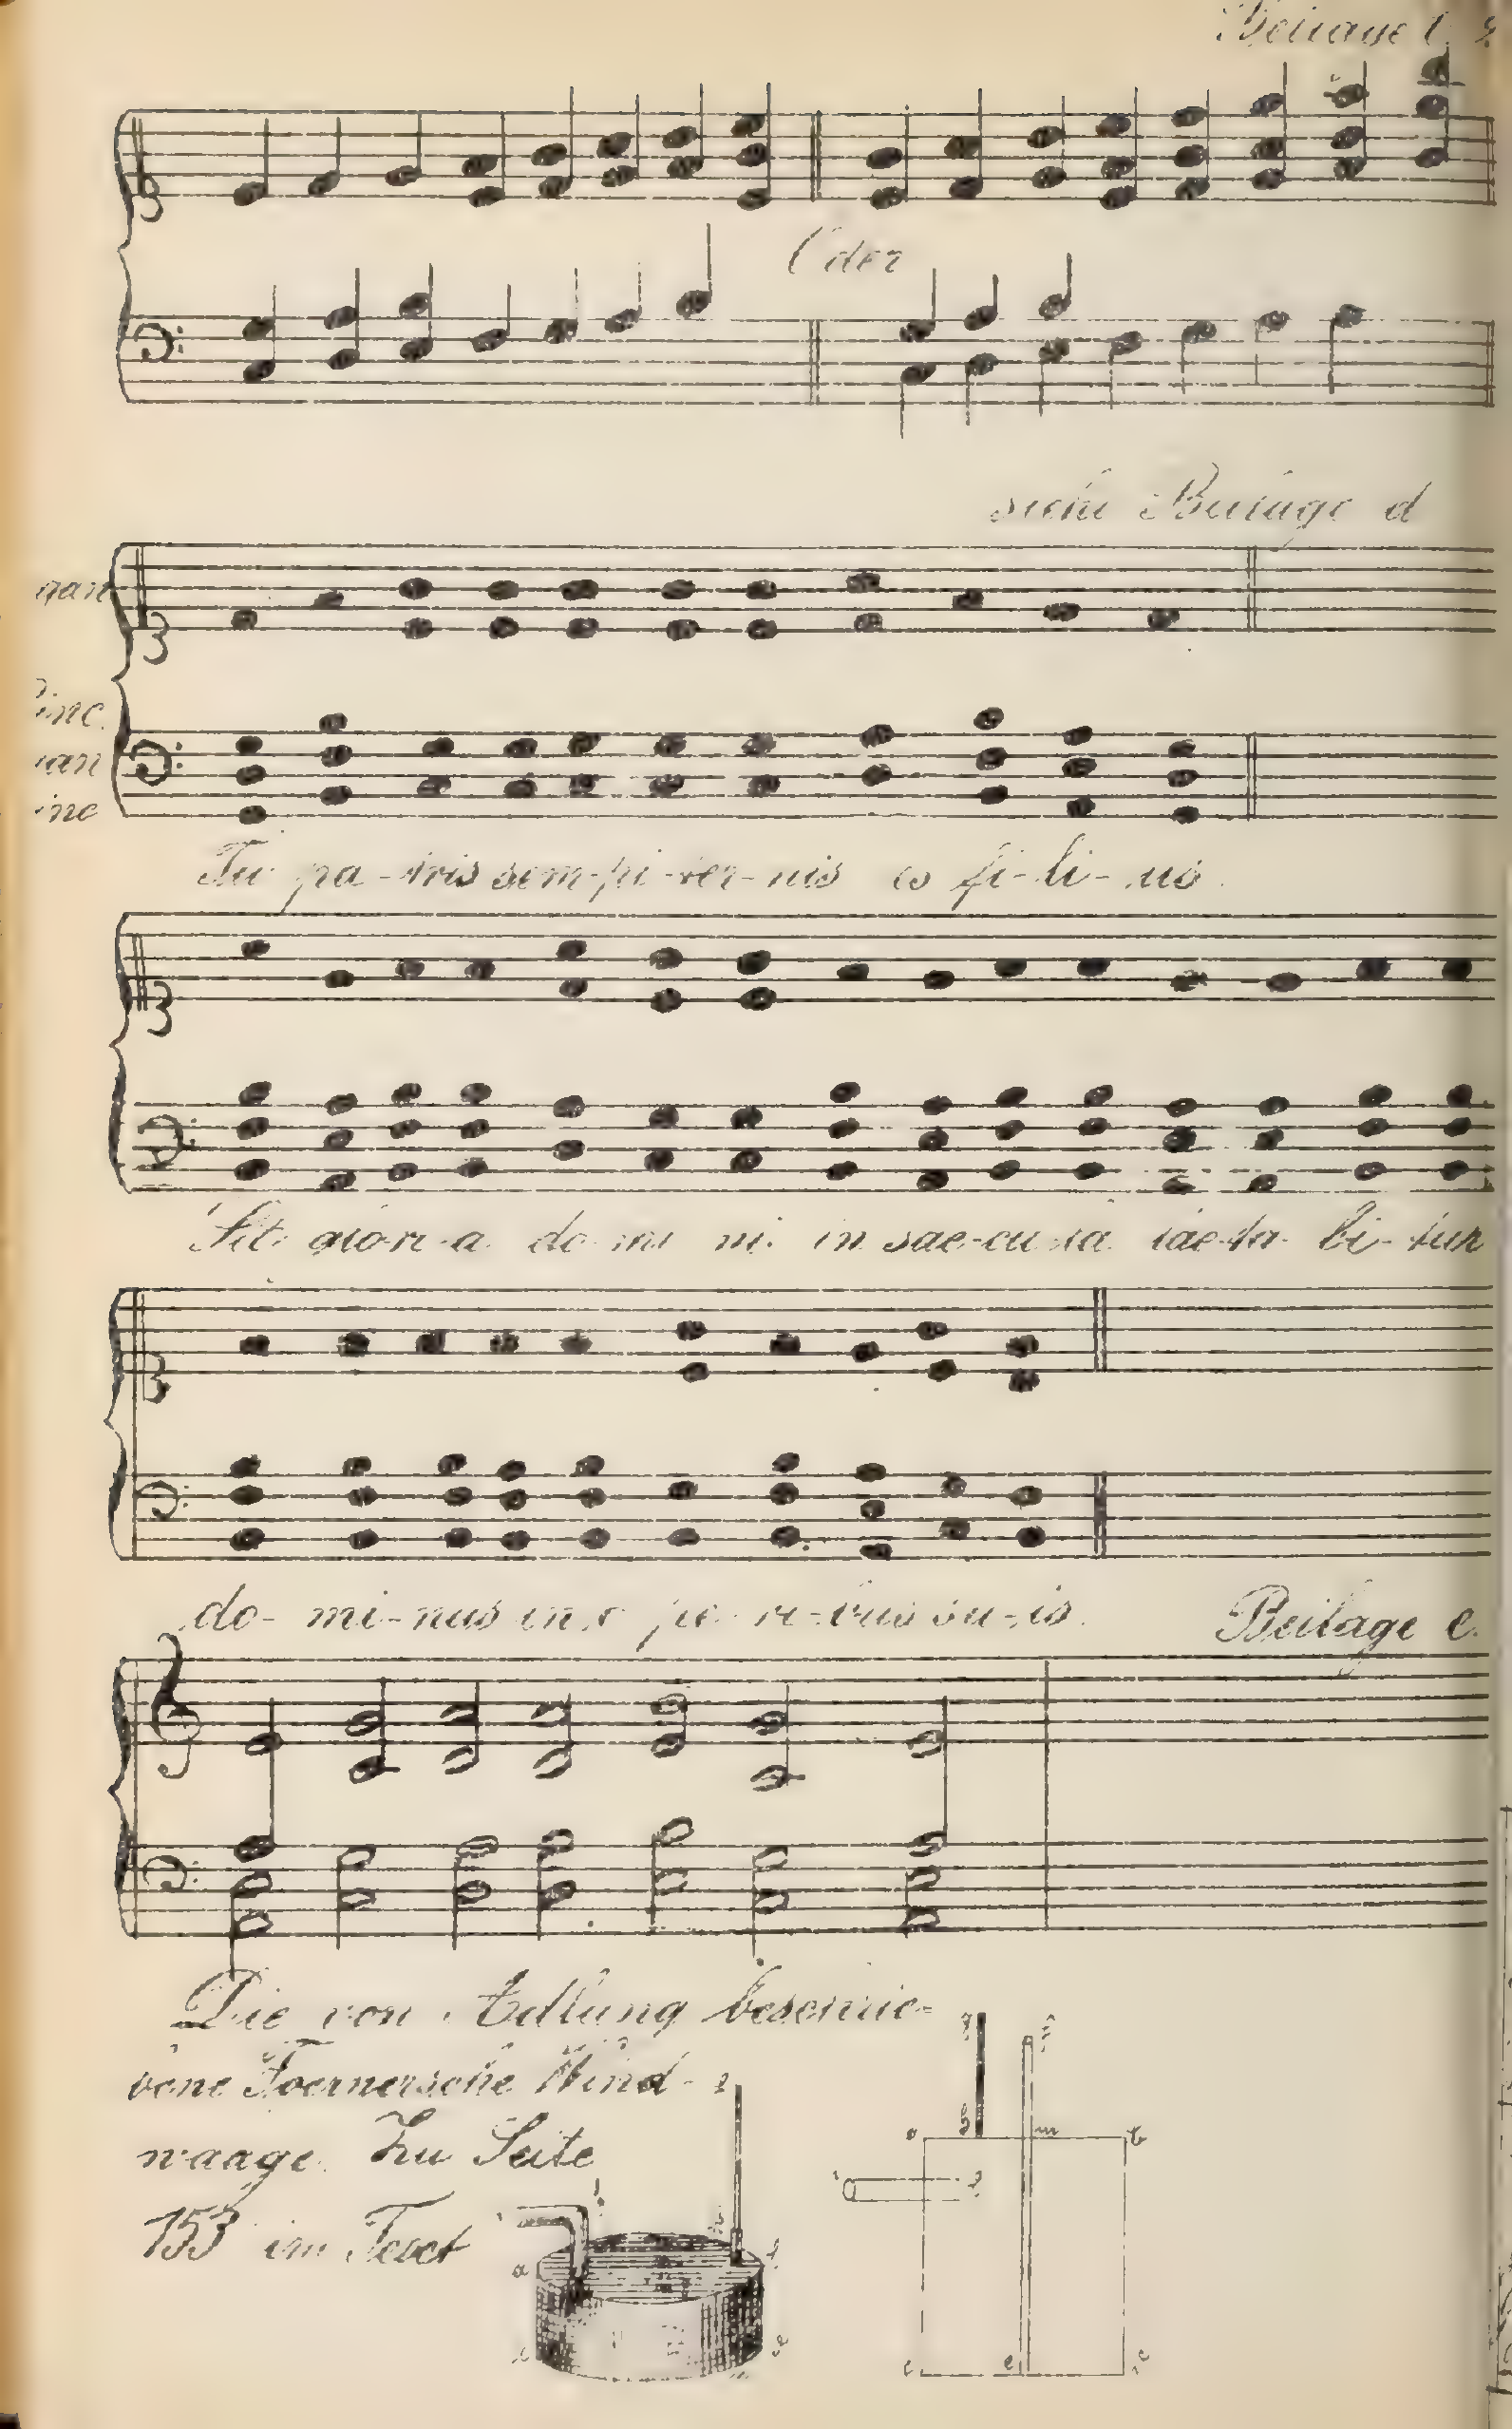 Beilage
Oder
siehe Beilage d
Tu pa-tris sem-pi-ter-nis es fi-li-us.
Sit glo-ri-a do mi ni in sae-cu-la lae-ta- bi-tur
do- mi-nus in o pe ri-bus su-is. Beilage e.
Die von Adlung beschrie-
bene Foernersche Wind-
waage. Zu Seite
153 im Text